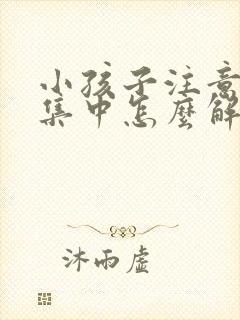 小孩子注意
集中怎麼解
沐雨虛